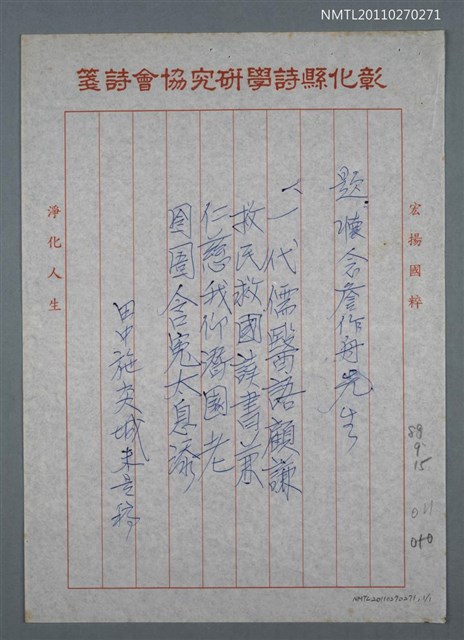 NMTL20110270271
彰化縣詩學研究協會詩箋
宏揚國粹
題:懷念詹作舟先生
一代儒醫諾顧謙
救民救國讀書兼
仁慈我仰潛園老
囹圄含冤太息添
田中施 城未是稿
淨化人生
89
9.
15
011
010
NMTL20110270271 1/1